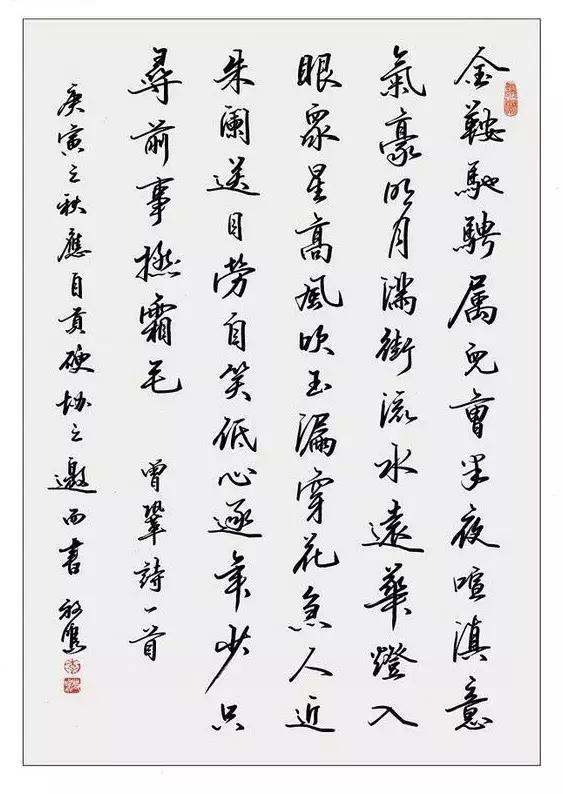 金鞍馳騁属兒曹半夜喧滇意
氣豪明月滿街流水遠華燈入
眼眾星高風吹玉漏穿花急人近
朱闌送目勞自笑低心逐年少只
尋前事撚霜毛 曾鞏詩一首
庚寅之秋應自貢硬協之邀而書